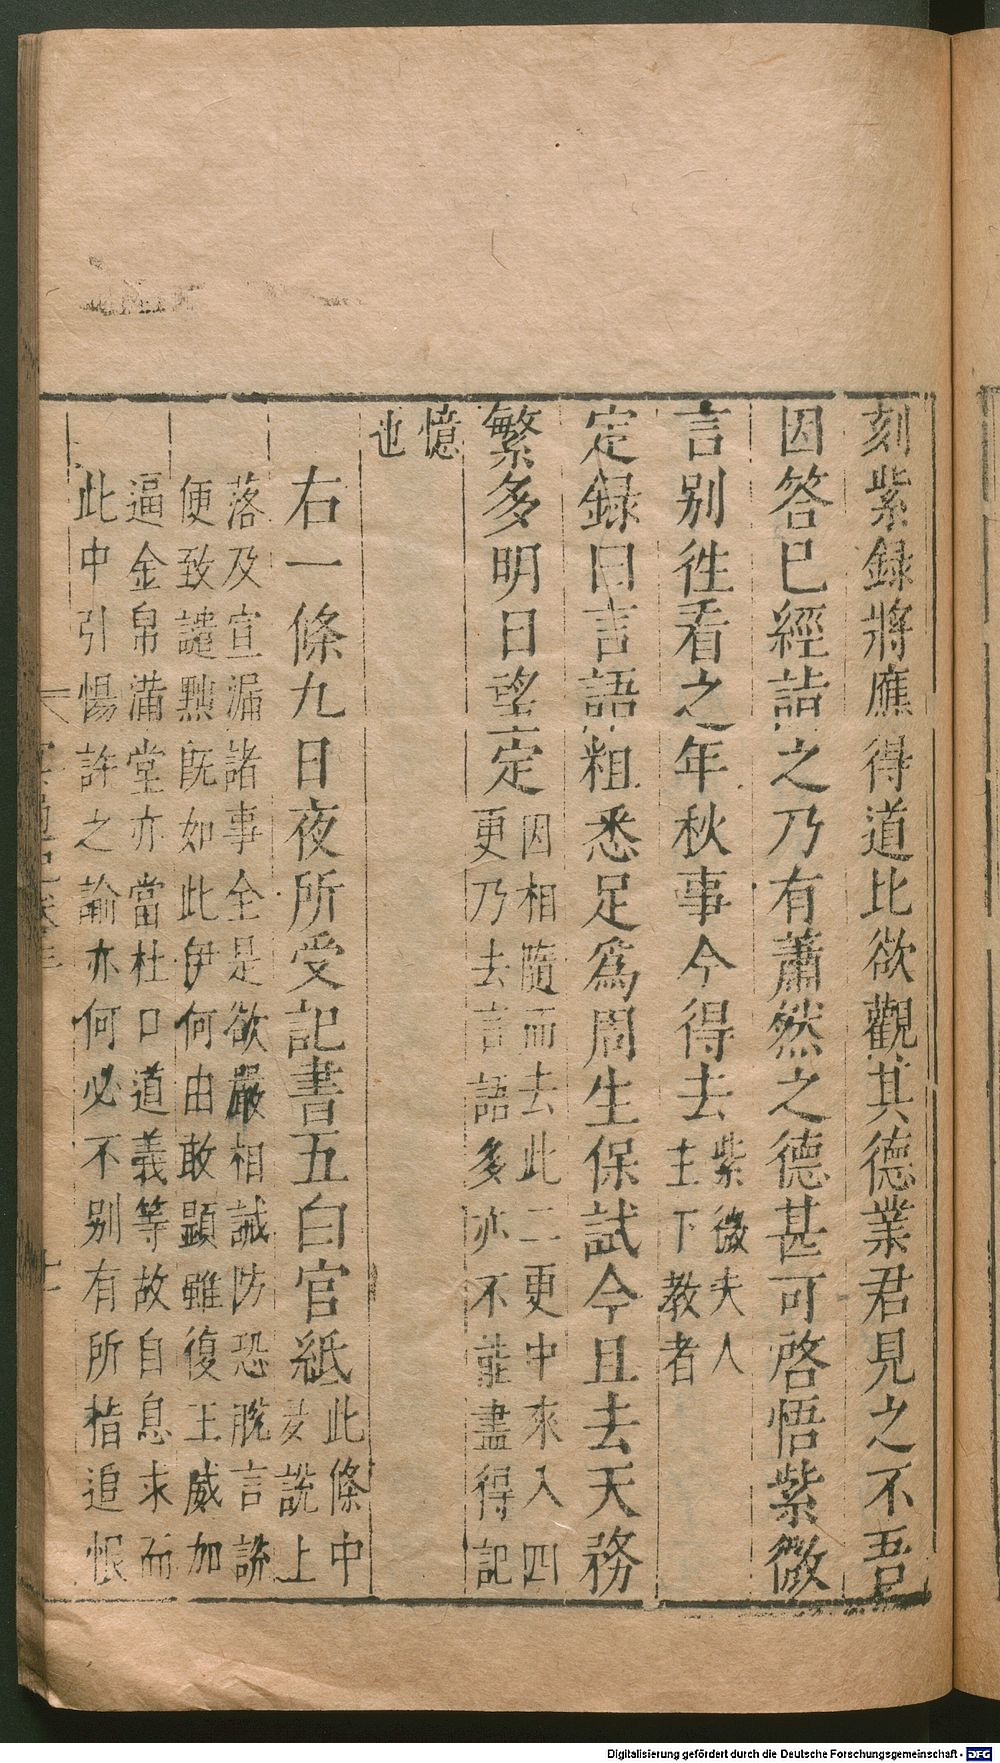 刻紫録將應得道比欲觀其德業君見之不吾
因答巳經詣之乃有蕭然之德甚可啓悟紫微
言别徃看之年秋事今得去紫微夫人
主下教者
定録曰言語粗悉足爲周生保試今且去天務
繁多明日望定因相隨而去此二更中來入四
更乃去言語多亦不能盡得記
憶
也
右一條九日夜所受記書五白官紙此條中
友說上
落及宣漏諸事全是欲嚴相誡防恐脫言說
便致譴㸃旣如此伊何由敢顯雖復王威加
逼金帛滿堂亦當杜口道義等故自息求而
此中引惕許之論亦何必不别有所楷追恨
Digitalisierung gefördert durch die Deutsche Forschungsgemeinschaft - DFG